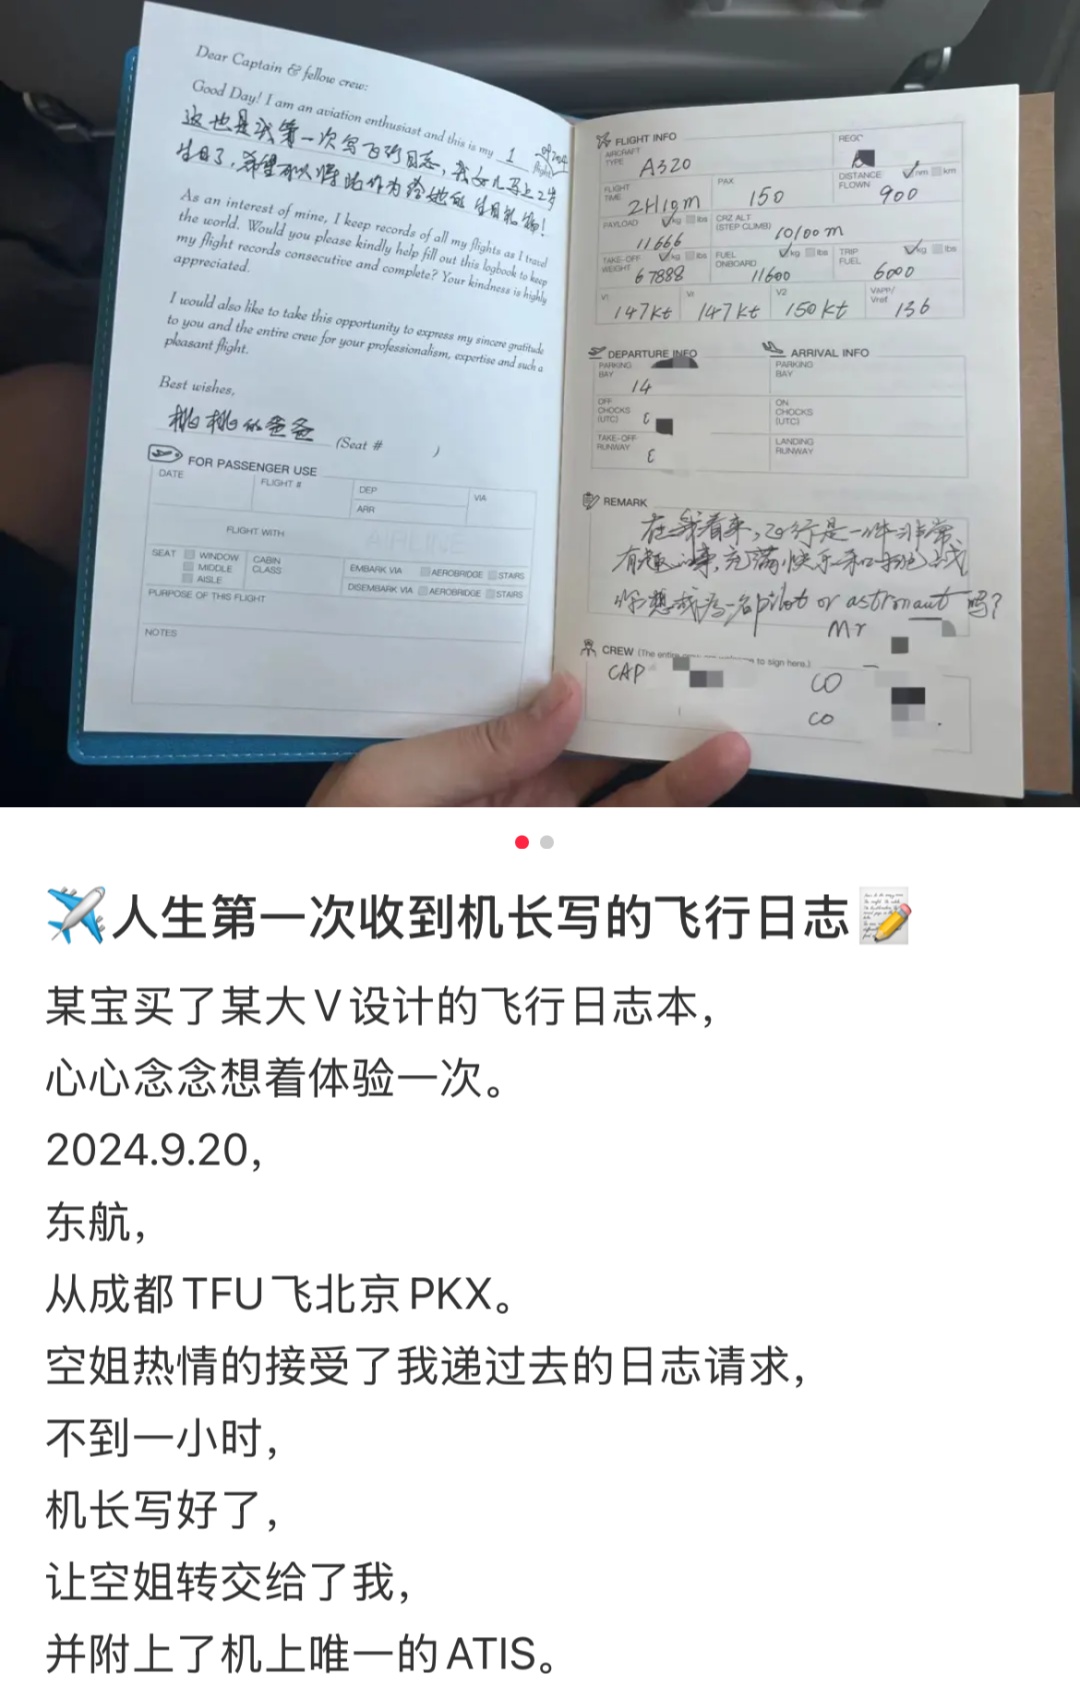 Dear Captain & fellow crew:
Good Day! I am an aviation enthusiast and this is my 1
flight
这也是我第一次写飞行日志，我女儿马上2岁
生日了，希望可以将此作为给她的生日礼物！
As an interest of mine, I keep records of all my flights as I travel
the world. Would you please kindly help fill out this logbook to keep
my flight records consecutive and complete? Your kindness is highly
appreciated.
I would also like to take this opportunity to express my sincere gratitude
to you and the entire crew for your professionalism, expertise and such a
pleasant flight.
Best wishes,
桃桃的爸爸 (Seat # )
FOR PASSENGER USE
DATE
FLIGHT #
DEP
VIA
ARR
FLIGHT WITH
AIRLINE
SEAT WINDOW
MIDDLE
AISLE
CABIN
CLASS
EMBARK VIA AEROBRIDGE STAIRS
DISEMBARK VIA AEROBRIDGE STAIRS
PURPOSE OF THIS FLIGHT
NOTES
FLIGHT INFO
AIRCRAFT
TYPE
A320
FLIGHT
TIME
2H19m
PAX
150
DISTANCE
FLOWN
nm km
900
PAYLOAD kg lbs
11666
CRZ ALT
(STEP CLIMB)
10100m
TAKE-OFF
WEIGHT
kg lbs
67888
FUEL
ONBOARD
kg lbs
11600
TRIP
FUEL
kg lbs
6000
V1
147kt
VR
147kt
V2
150kt
VAPP/
Vref
136
DEPARTURE INFO
PARKING
BAY
14
OFF
CHOCKS
(UTC)
TAKE-OFF
RUNWAY
ARRIVAL INFO
PARKING
BAY
ON
CHOCKS
(UTC)
LANDING
RUNWAY
REMARK
在我看来，飞行是一件非常
有趣的事，充满快乐和挑战
你想成为一名pilot or astronaut 吗？
Mr
CREW (The entire to sign here.)
CAP
CO
CO
✈️人生第一次收到机长写的飞行日志📝
某宝买了某大V设计的飞行日志本，
心心念念想着体验一次。
2024.9.20，
东航，
从成都TFU飞北京PKX。
空姐热情的接受了我递过去的日志请求，
不到一小时，
机长写好了，
让空姐转交给了我，
并附上了机上唯一的ATIS。